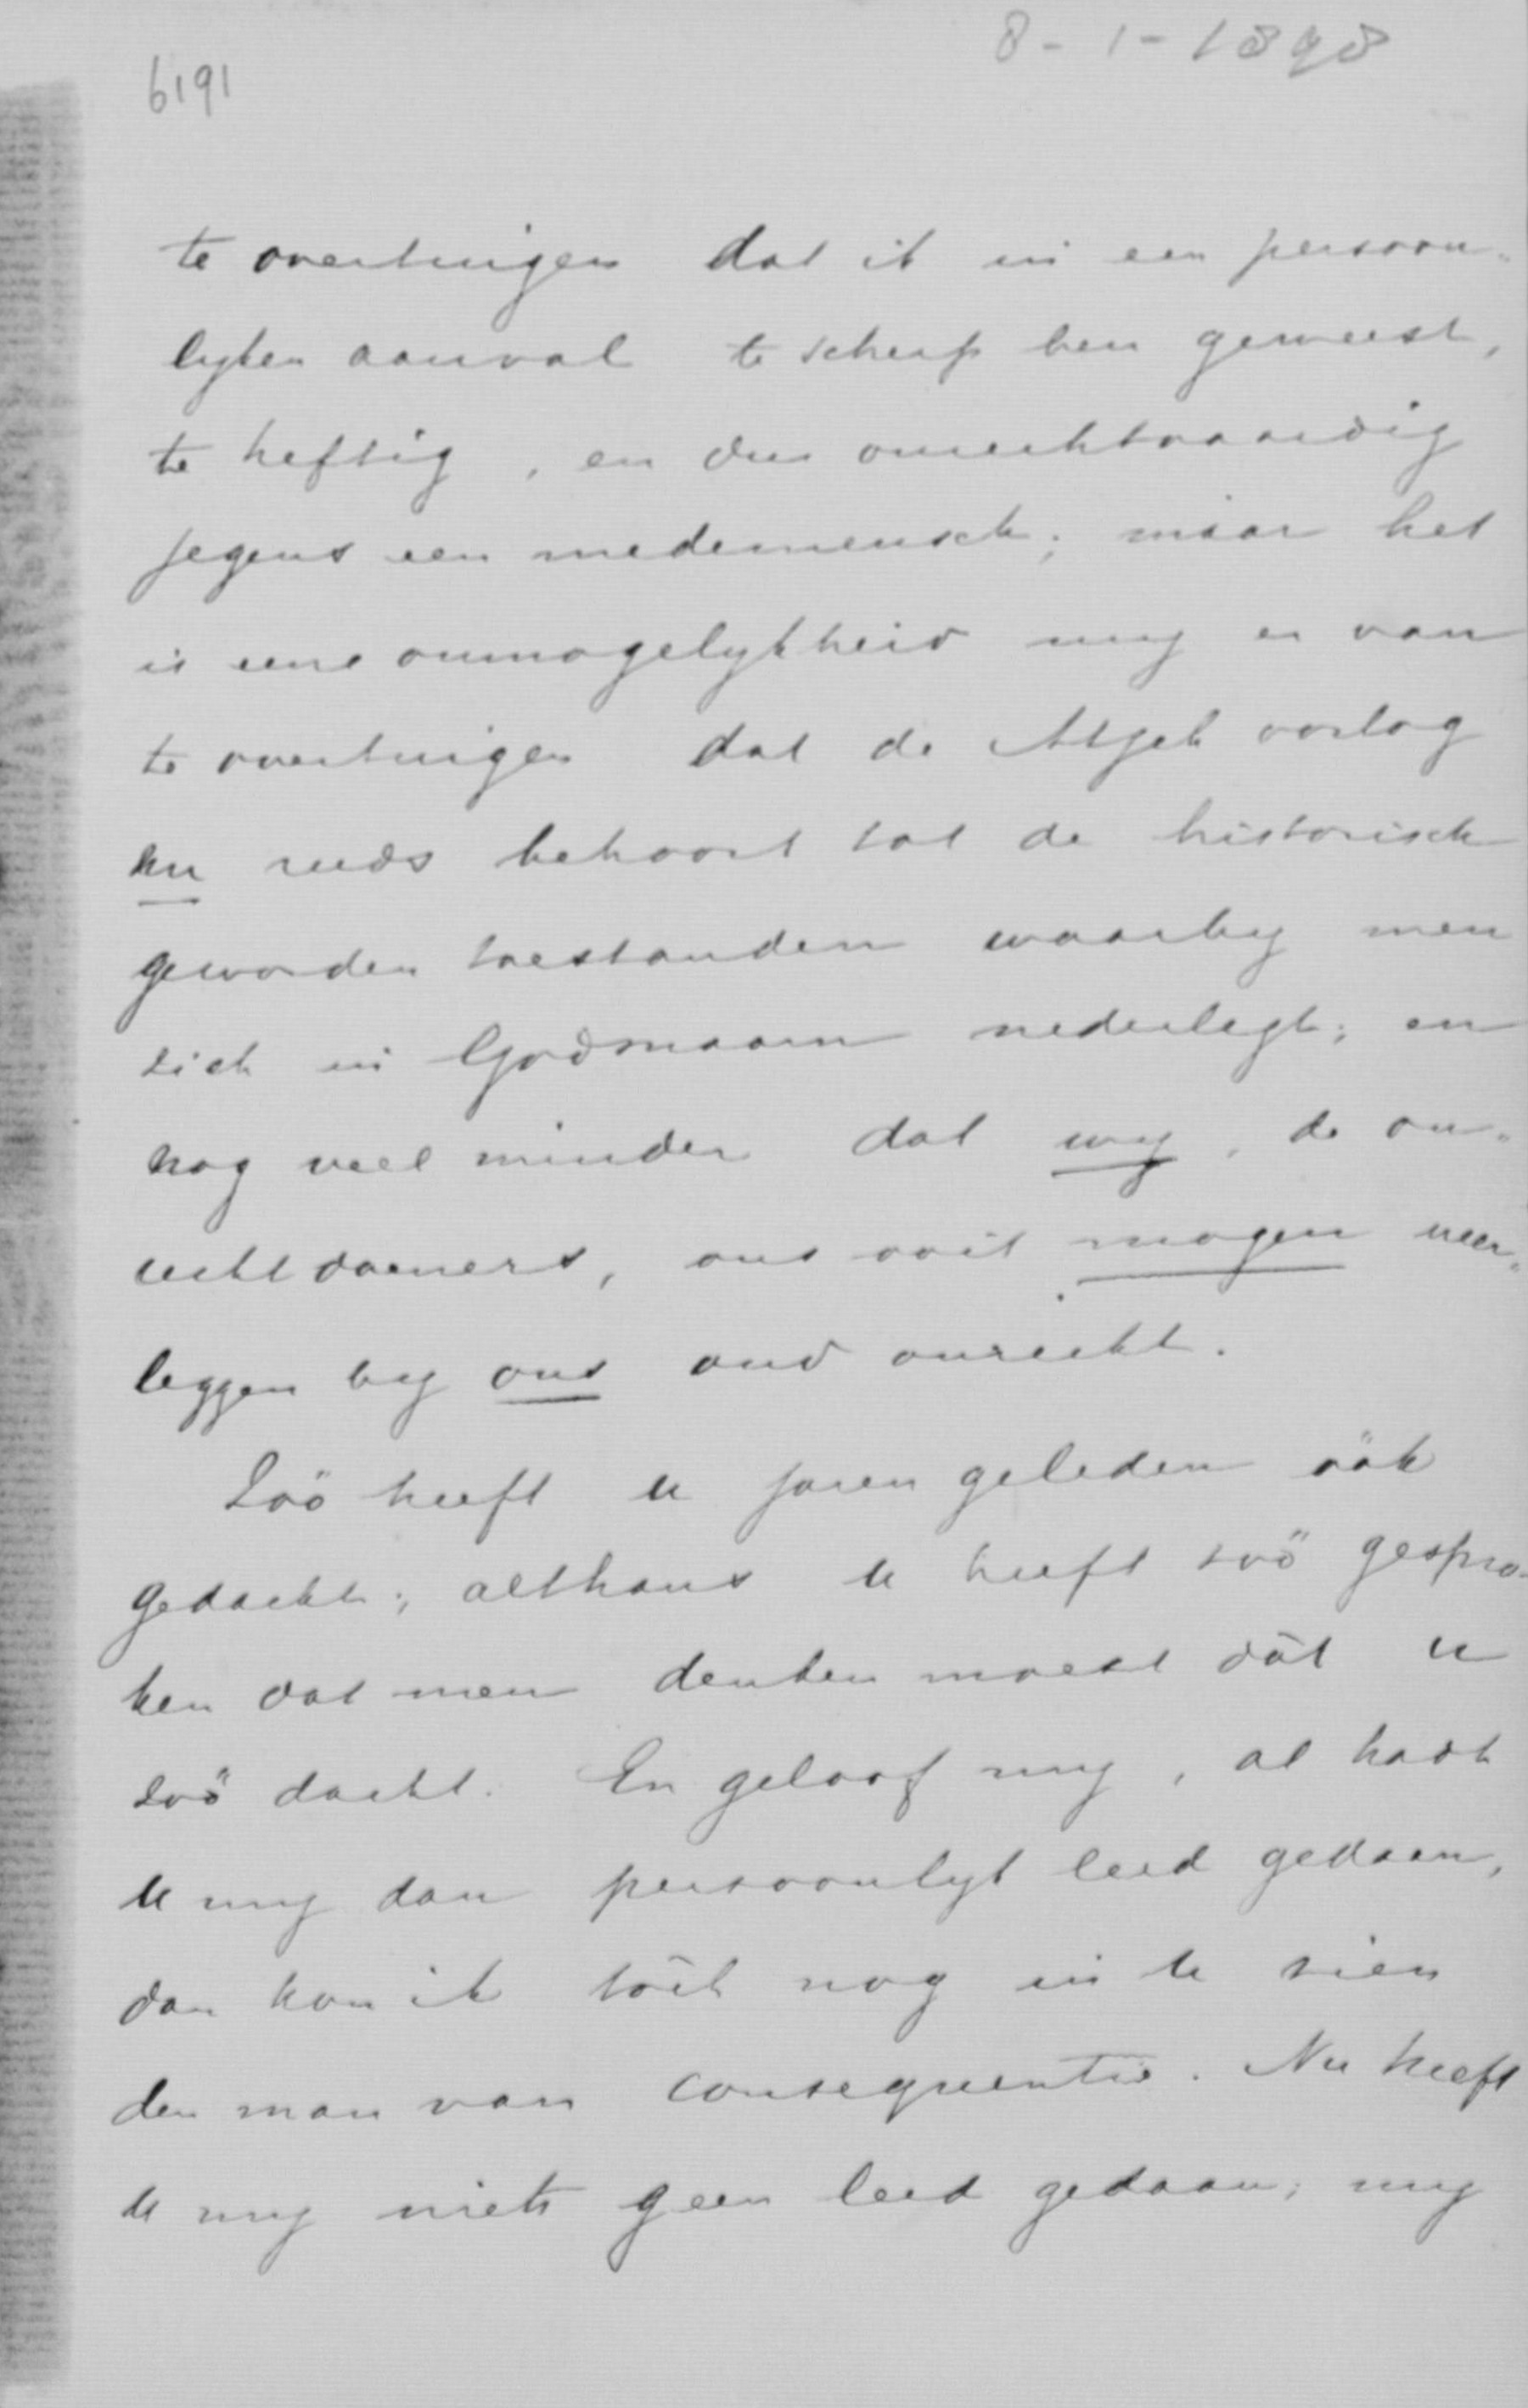 8-1-1898
6191
te overtuigen dat ik in een persoon-
lyken aanval te scherp ben geweest,
te heftig, en dus onrechtvaardig
jegens een medemensch; maar het
is eene onmogelykheid my er van
te overtuigen dat de Atjeh oorlog
nu reeds behoort tot de historisch
geworden toestanden waarby men
zich in Godsnaam nederlegt; en
nog veel minder dat wy, de on-
rechtdoeners, ons ooit mogen neer-
leggen by ons oud onrecht.
Zóó heeft u jaren geleden óók
gedacht; althans u heeft zóó gespro-
ken dat men denken moest dát u
zóó dacht. En geloof my, al hadt
u my dan persoonlyk leed gedaan,
dan kon ik tóch nog in u zien
den man van consequentie. Nu heeft
u my niets geen leed gedaan; my